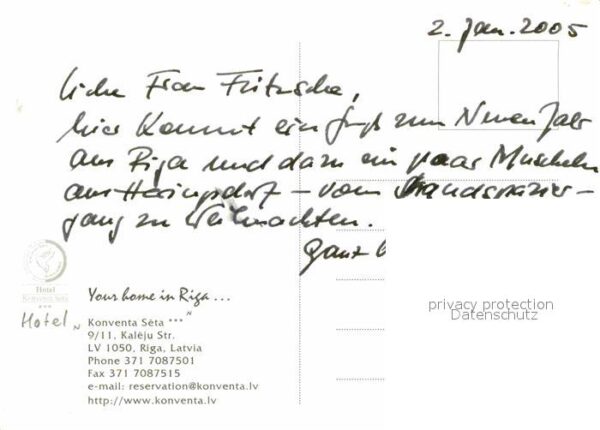 2. Jan. 2005
Liebe Frau Fritzsche,
hier kommt ein Gruß zum Neuen Jahr
aus Riga und dazu ein paar Muscheln
aus Heringsdorf – vom Strandspazier-
gang zu Weihnachten.
Ganz
Hotel
Konventa Sēta
***
Your home in Riga ...
Hotel „Konventa Sēta ***“
9/11, Kalēju Str.
LV 1050, Riga, Latvia
Phone 371 7087501
Fax 371 7087515
e-mail: reservation@konventa.lv
http://www.konventa.lv
privacy protection
Datenschutz